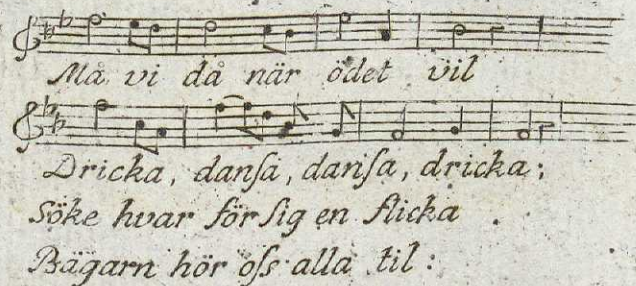 Må vi då när ödet vil
Dricka, danſa, danſa, dricka;
Söke hvar för ſig en flicka
Bägarn hör oſs alla til: